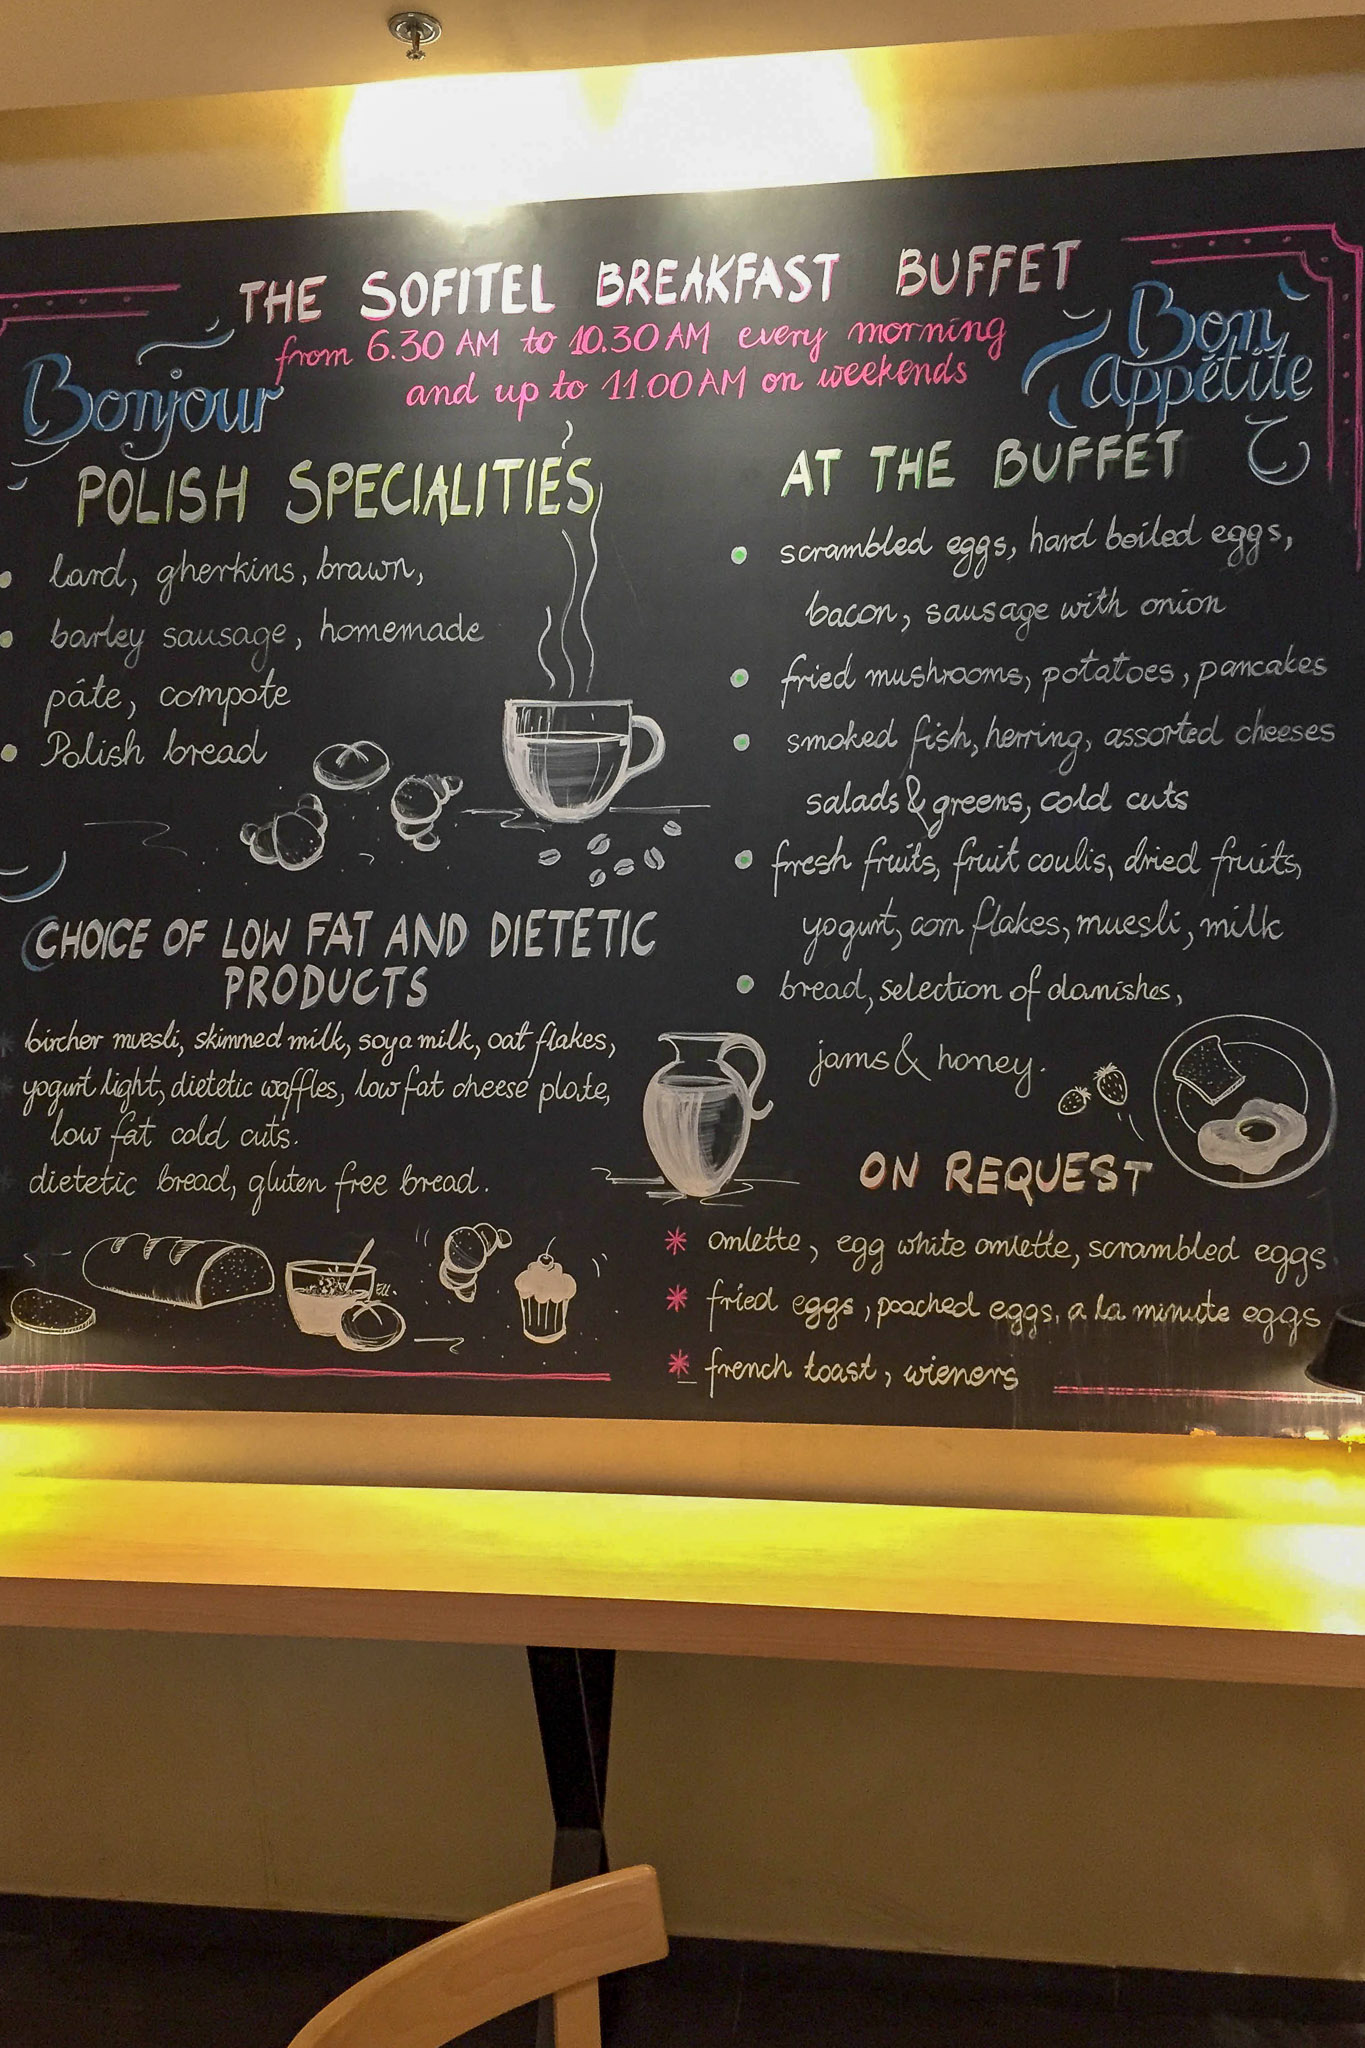 THE SOFITEL BREAKFAST BUFFET
from 6.30 AM to 10.30 AM every morning
and up to 11.00 AM on weekends
Bonjour
Bon
appétite
POLISH SPECIALITIES
lard, gherkins, brawn,
barley sausage, homemade
pâte, compote
Polish bread
CHOICE OF LOW FAT AND DIETETIC
PRODUCTS
bircher muesli, skimmed milk, soya milk, oat flakes,
yogurt light, dietetic waffles, low fat cheese plate,
low fat cold cuts.
dietetic bread, gluten free bread.
AT THE BUFFET
scrambled eggs, hard boiled eggs,
bacon, sausage with onion
fried mushrooms, potatoes, pancakes
smoked fish, herring, assorted cheeses
salads & greens, cold cuts
fresh fruits, fruit coulis, dried fruits,
yogurt, corn flakes, muesli, milk
bread, selection of danishes,
jams & honey.
ON REQUEST
omlette, egg white omlette, scrambled eggs
fried eggs, poached eggs, a la minute eggs
french toast, wieners